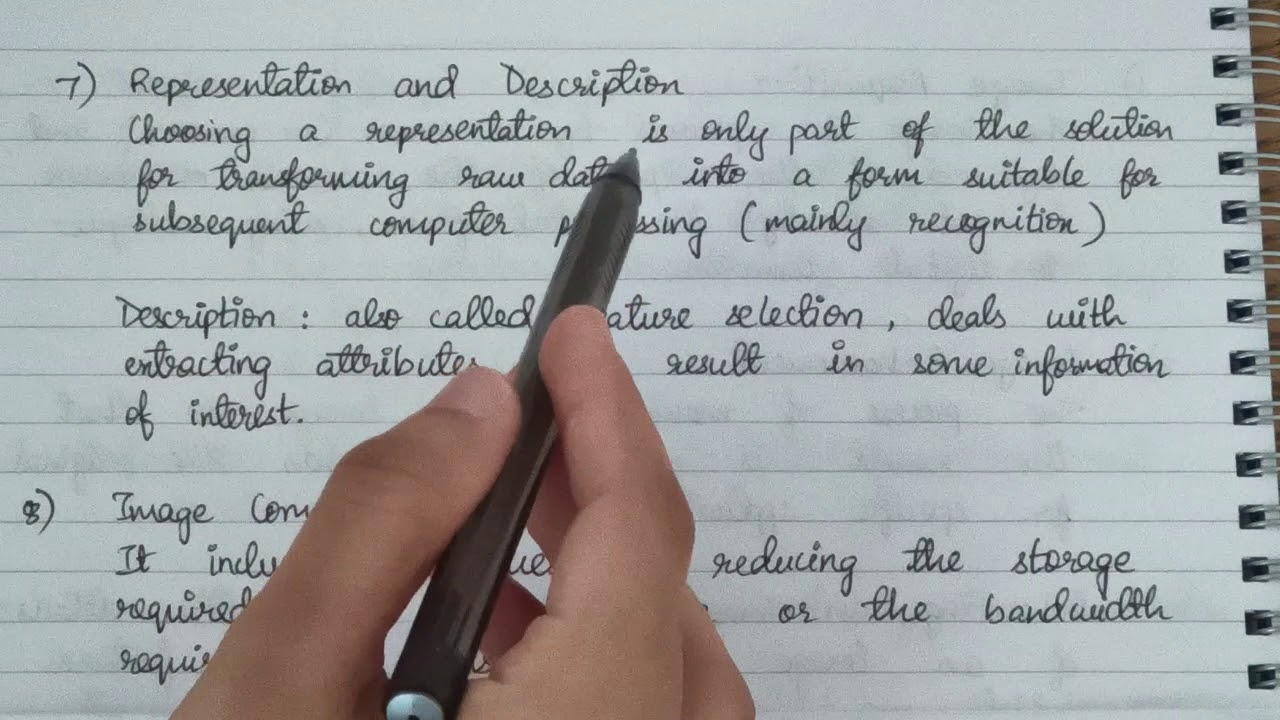 7) Representation and Description
Choosing a representation is only part of the solution
for transforming raw data into a form suitable for
subsequent computer ssing (mainly recognition)
Description : also called ature selection, deals with
extracting attributes result in some information
of interest.
8) Image Com
It inclu reducing the storage
required or the bandwidth
requi